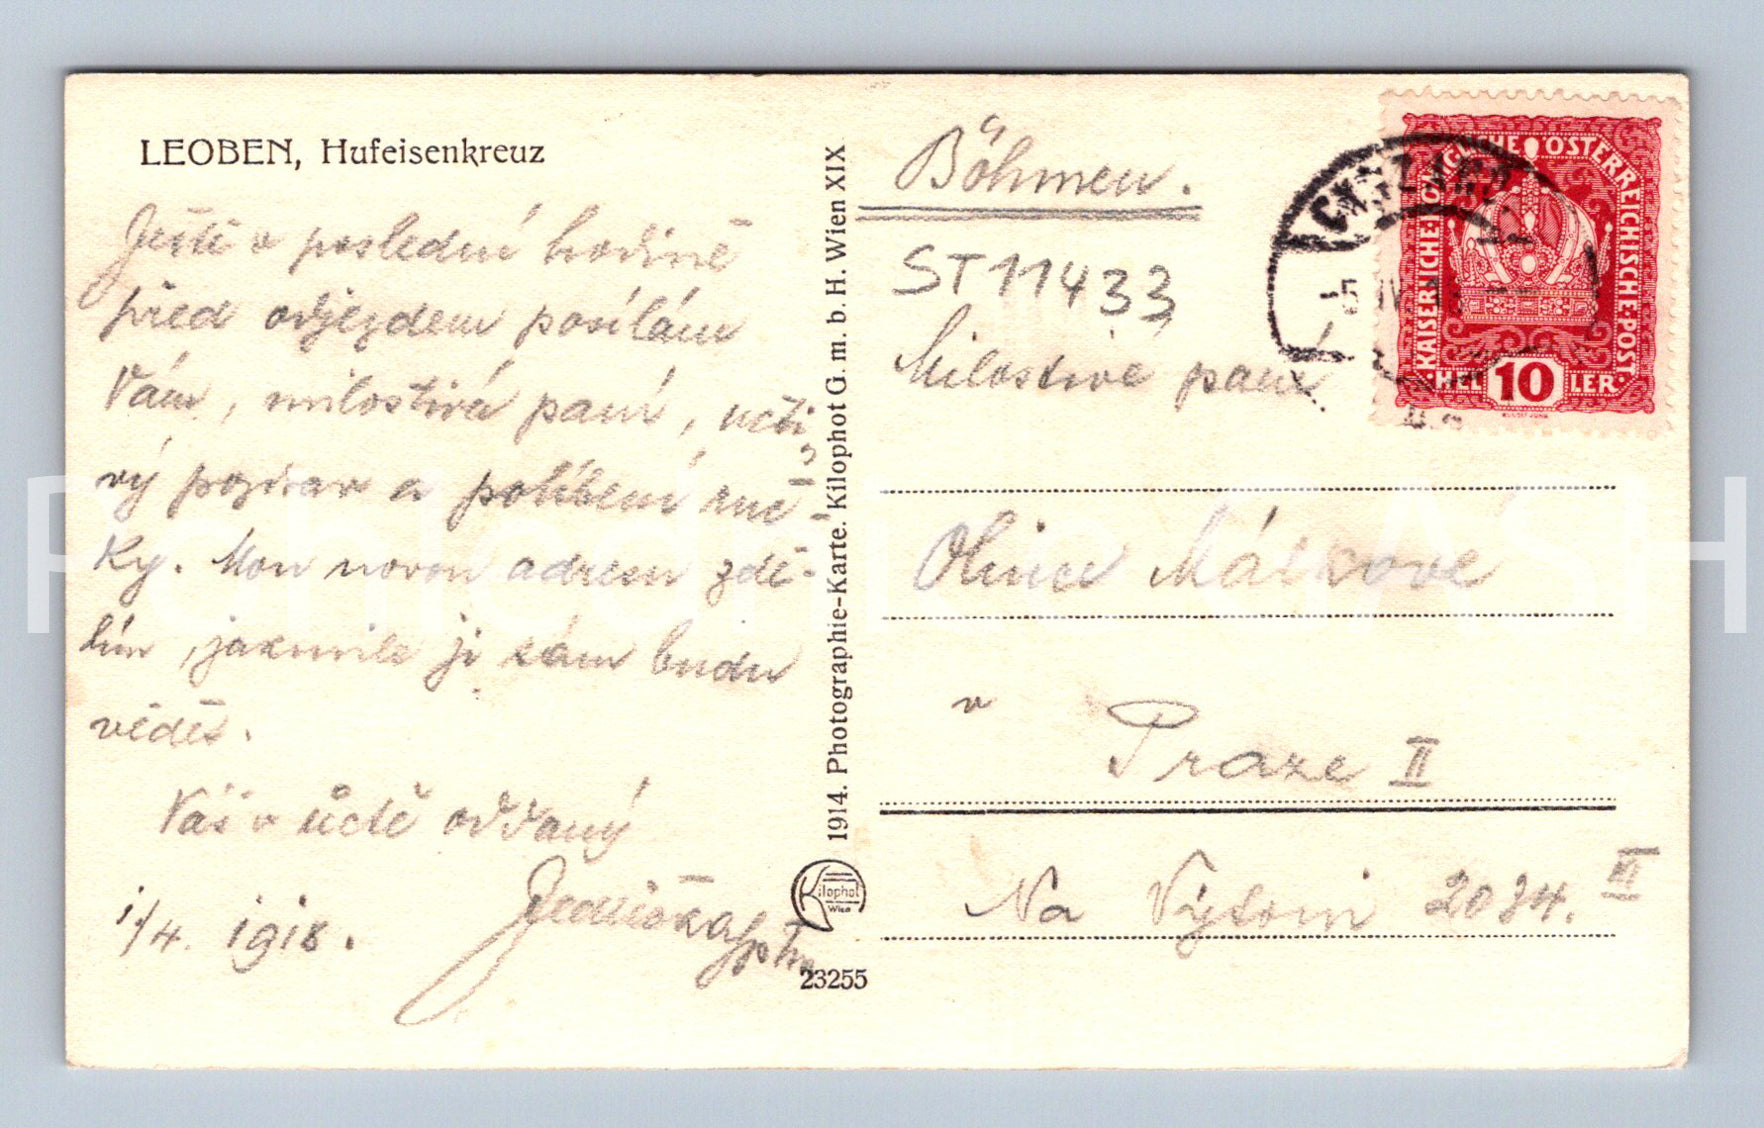 LEOBEN, Hufeisenkreuz
Ještě v poslední hodině
před odjezdem posílám
Vám, milostivá paní, ucti-
vý pozdrav a políbení ruč-
ky. Mou novou adresu zdě-
lím, jakmile ji sám budu
vědět.
Váš v úctě oddaný
1/4. 1918.
1914. Photographie-Karte. Kilophot G. m. b. H. Wien XIX
Kilophot
Wien
23255
Böhmen.
ST11433
Milostivé paní
Olince Málkové
v
Praze II
Na Výtoni 2034. III
KAISERLICHE·KÖNIGLICHE ÖSTERREICHISCHE·POST
HELLER
10
-5 IV 18
Pohlednice ASH